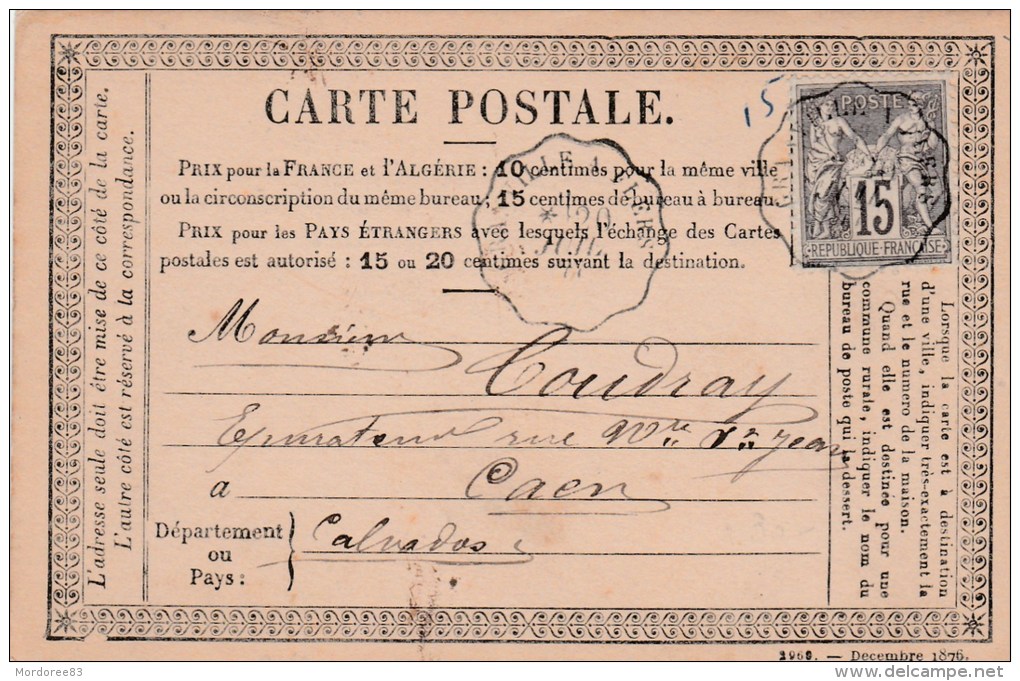 CARTE POSTALE.
PRIX pour la FRANCE et l'ALGÉRIE : 10 centimes pour la même ville
ou la circonscription du même bureau ; 15 centimes de bureau à bureau.
PRIX pour les PAYS ÉTRANGERS avec lesquels l'échange des Cartes
postales est autorisé : 15 ou 20 centimes suivant la destination.
15
POSTE
15
RÉPUBLIQUE FRANÇAISE
20
JUIL
Monsieur
Coudray
Epurateur rue
Jean
a Caen
Département
ou
Pays :
Calvados
L'adresse seule doit être mise de ce côté de la carte.
L'autre côté est réservé à la correspondance.
Lorsque la carte est à destination
d'une ville, indiquer très-exactement la
rue et le numero de la maison.
Quand elle est destinée pour une
commune rurale, indiquer le nom du
bureau de poste qui la dessert.
2969. — Decembre 1876.
Mordoree83
delcampe.net